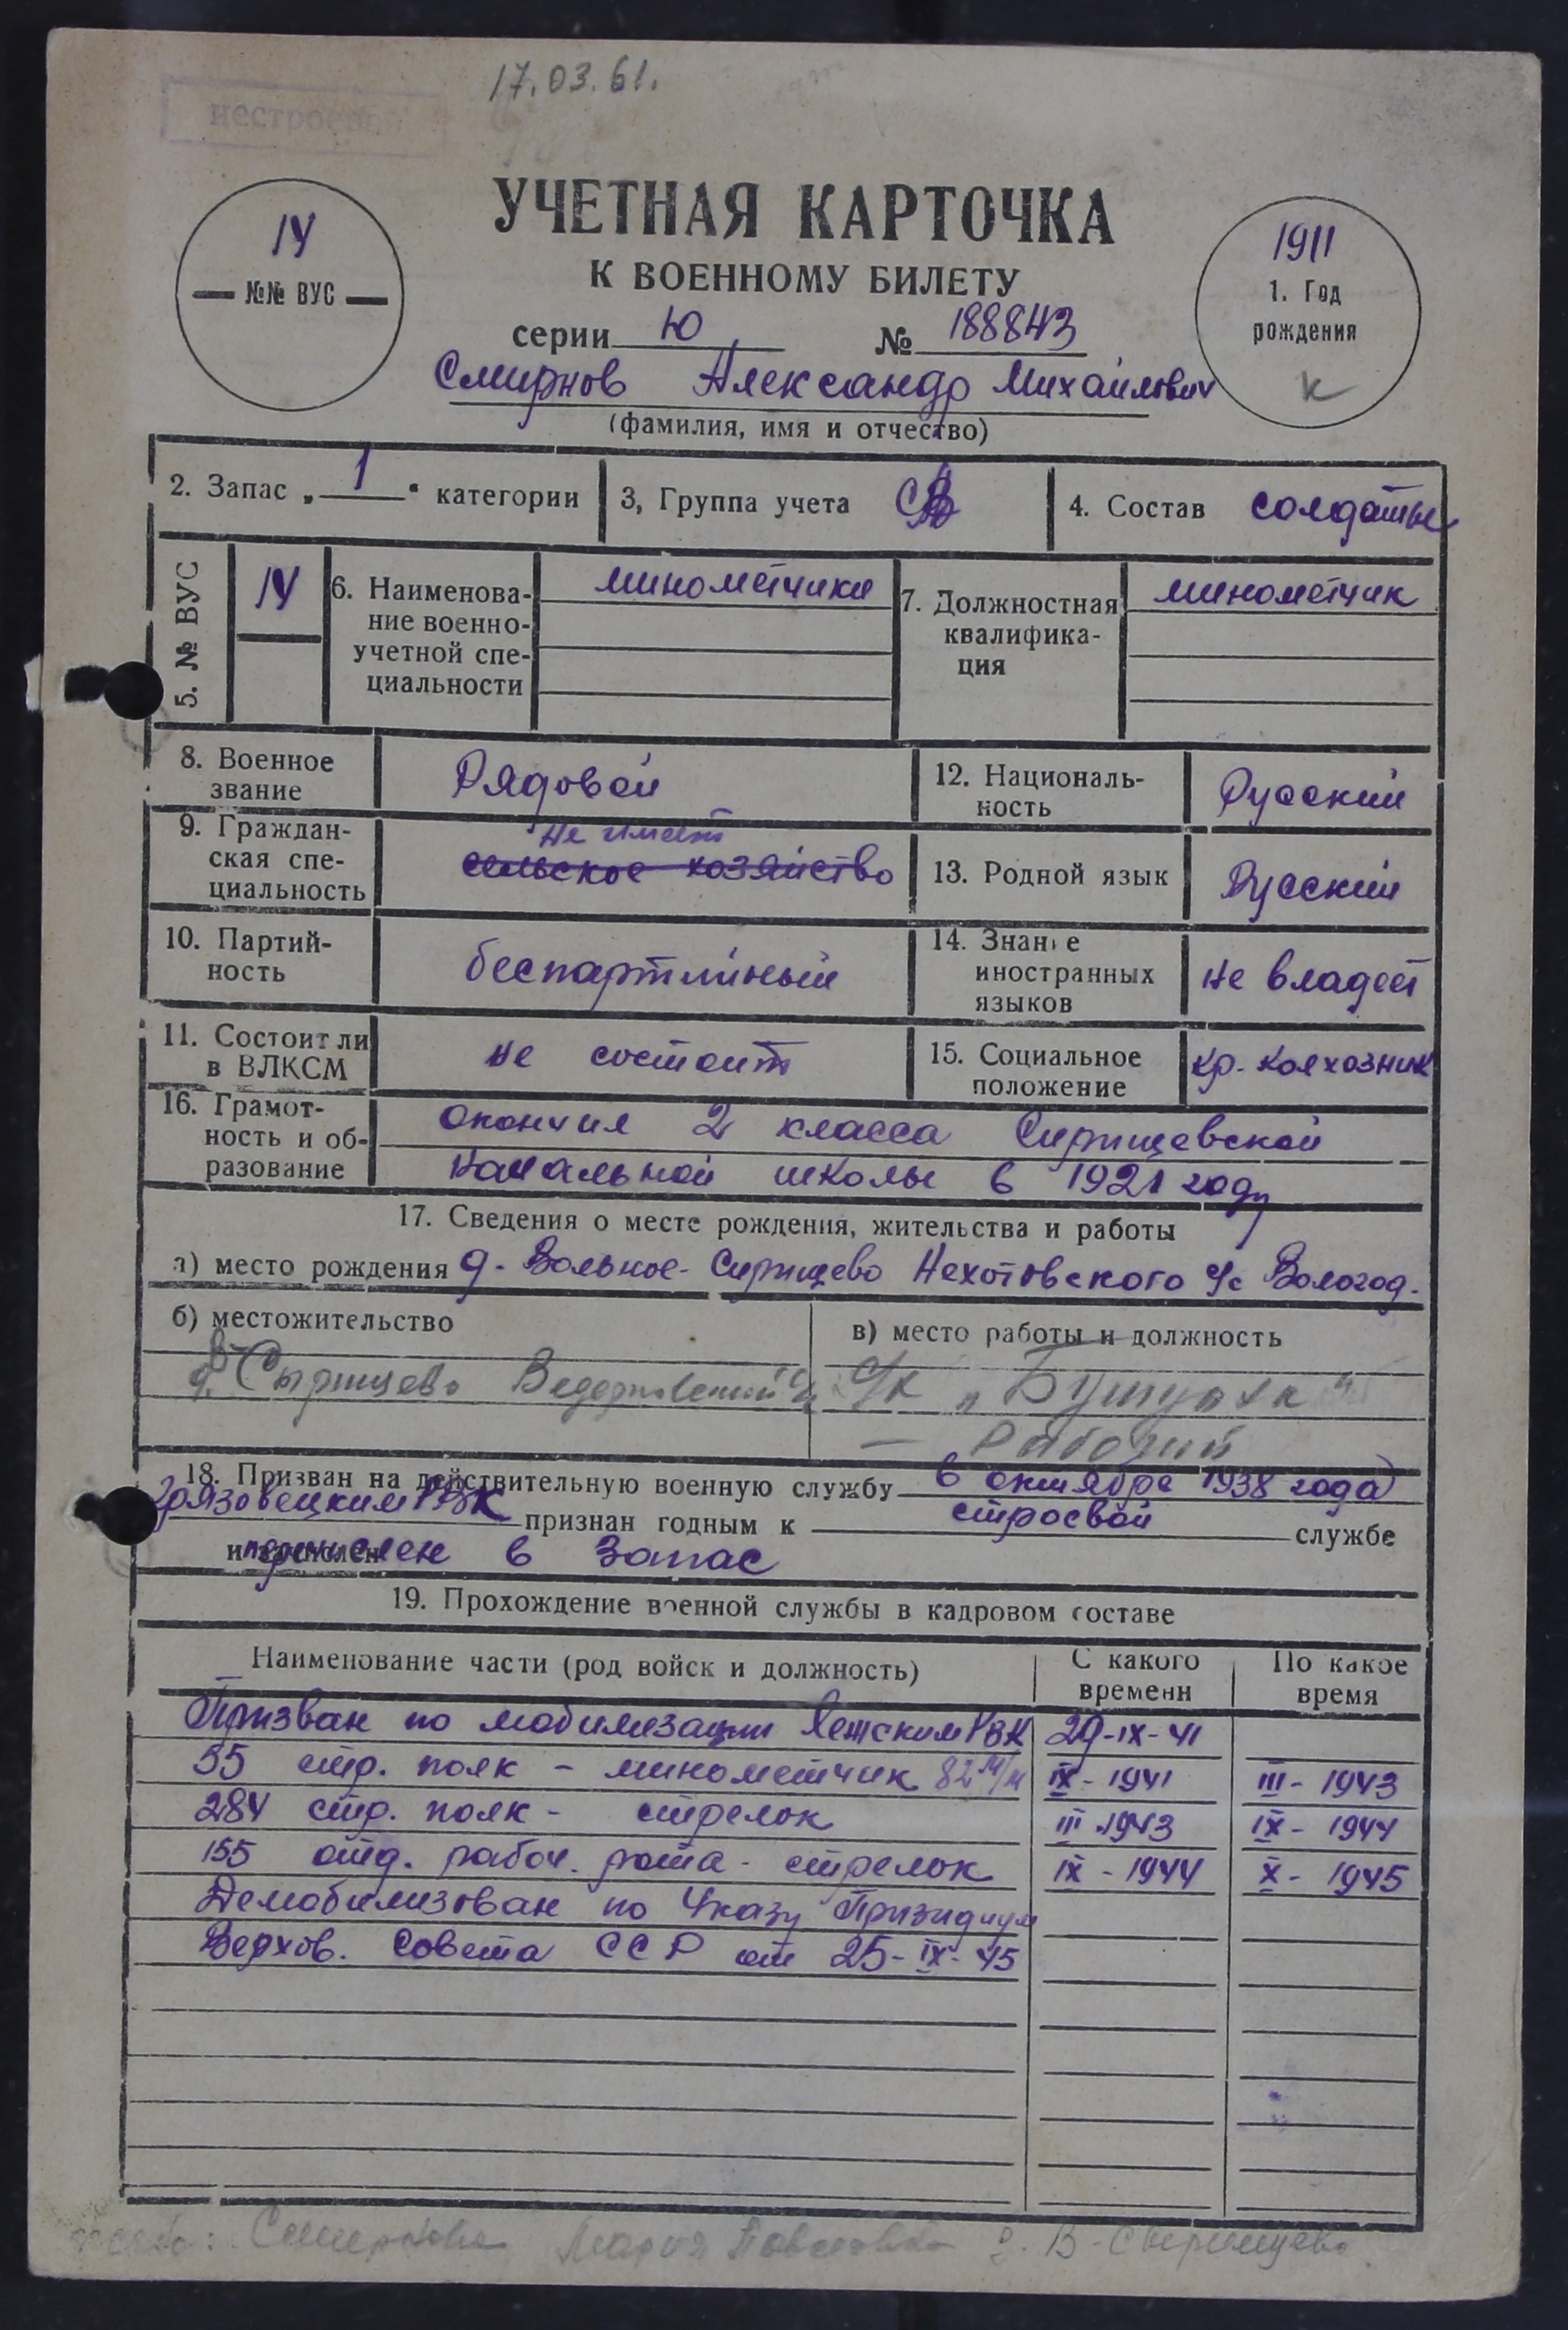 17.03.61.
нестроевой
14
№№ ВУС
УЧЕТНАЯ КАРТОЧКА
К ВОЕННОМУ БИЛЕТУ
серии Ю № 188843
Смирнов Александр Михайлович
(фамилия, имя и отчество)
1911
1. Год
рождения
К
2. Запас „ 1 “ категории
3, Группа учета
4. Состав солдаты
5. № ВУС
14
6. Наименова-
ние военно-
учетной спе-
циальности
минометчики
7. Должностная
квалифика-
ция
минометчик
8. Военное
звание
Рядовой
12. Националь-
ность
Русский
9. Граждан-
ская спе-
циальность
Не имеет
сельское хозяйство
13. Родной язык
Русский
10. Партий-
ность
беспартийный
14. Знание
иностранных
языков
не владеет
11. Состоит ли
в ВЛКСМ
не состоит
15. Социальное
положение
кр. колхозник
16. Грамот-
ность и об-
разование
окончил 2 класса Сирищевской
начальной школы в 1921 году
17. Сведения о месте рождения, жительства и работы
а) место рождения д. Вольное-Сирищево Нехотовского с/с Вологод.
б) местожительство
в) место работы и должность
Рабочий
18. Призван на действительную военную службу в октябре 1938 года
Грязовецким РВК признан годным к строевой службе
и зачислен перечислен в запас
19. Прохождение военной службы в кадровом составе
Наименование части (род войск и должность)
С какого
времени
По какое
время
Призван по мобилизации Лежским РВК 29-IX-41
55 стр. полк - минометчик 82 м/м IX - 1941 III - 1943
284 стр. полк - стрелок III - 1943 IX - 1944
155 отд. рабоч. рота - стрелок IX - 1944 X - 1945
Демобилизован по Указу Призидиум
Верхов. Совета ССР от 25-IX-45
Смирнова Мария Павловна